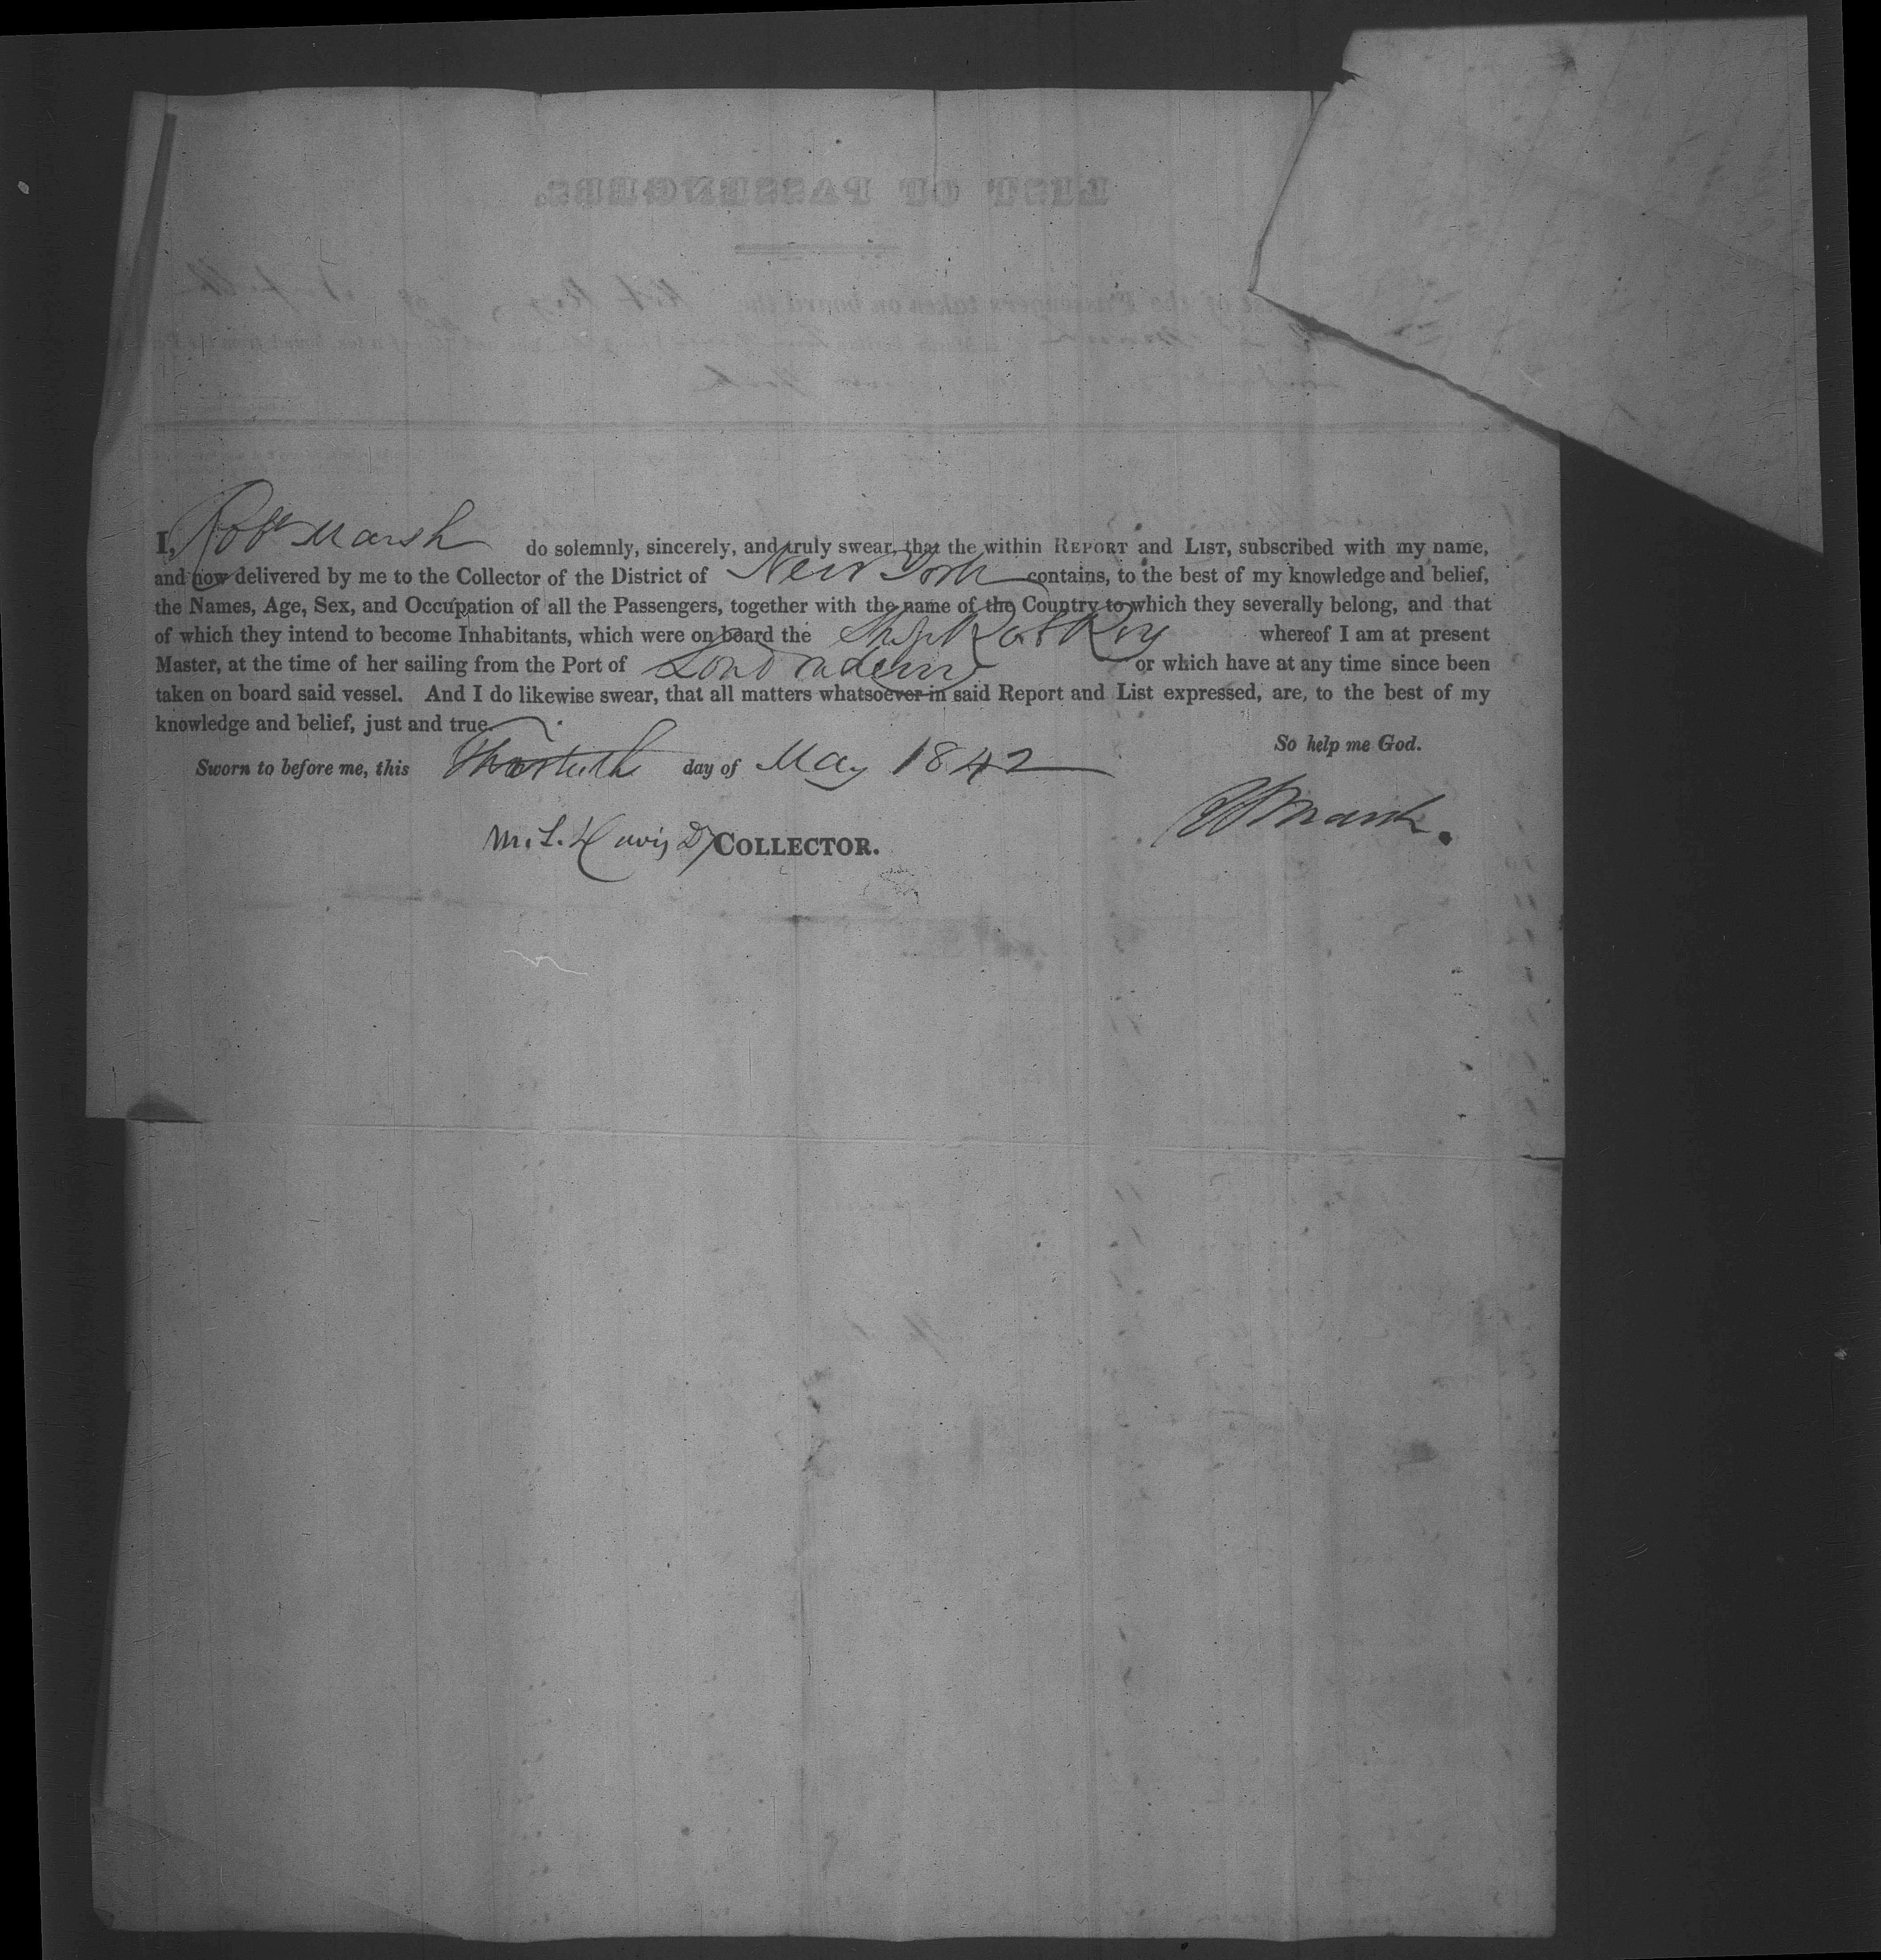 LIST OF PASSENGERS.
I, Robt Marsh do solemnly, sincerely, and truly swear, that the within REPORT and LIST, subscribed with my name,
and now delivered by me to the Collector of the District of New York contains, to the best of my knowledge and belief,
the Names, Age, Sex, and Occupation of all the Passengers, together with the name of the Country to which they severally belong, and that
of which they intend to become Inhabitants, which were on board the Ship Rob Roy whereof I am at present
Master, at the time of her sailing from the Port of Londonderry or which have at any time since been
taken on board said vessel. And I do likewise swear, that all matters whatsoever in said Report and List expressed, are, to the best of my
knowledge and belief, just and true.
So help me God.
Sworn to before me, this day of May 1842
Marsh.
M. L. Davis Dy COLLECTOR.